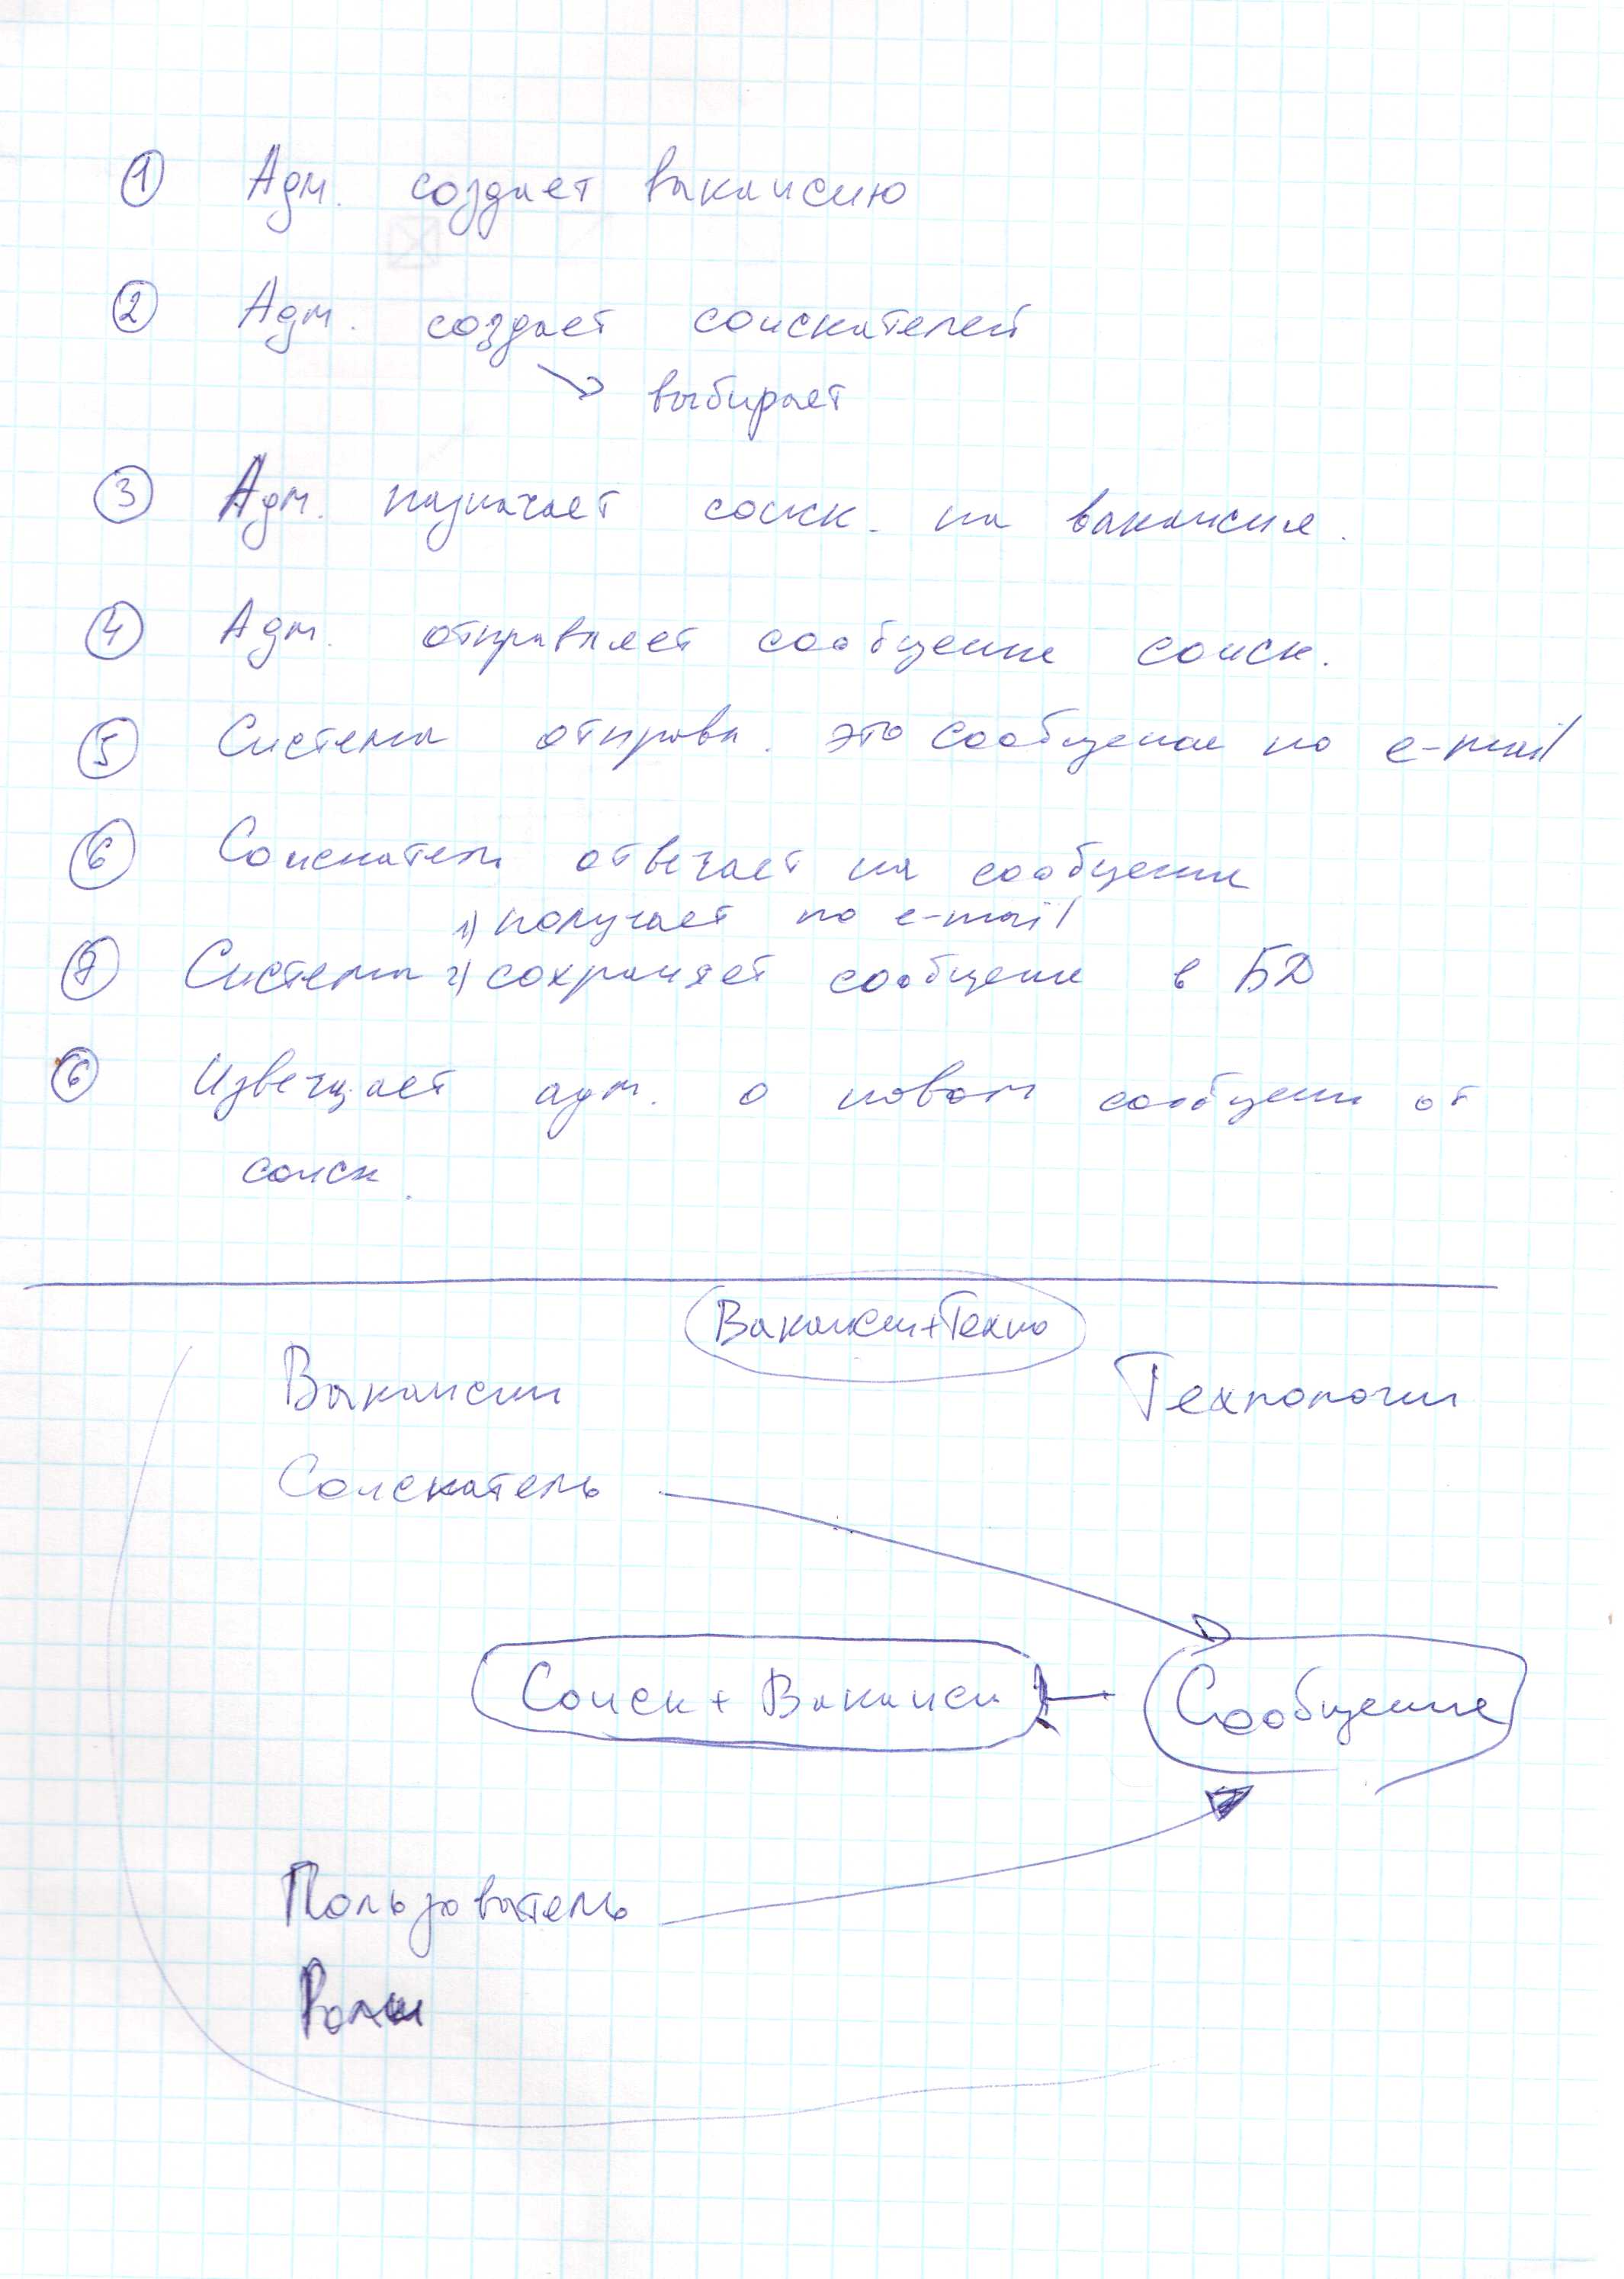 ① Адм. создает вакансию
② Адм. создает соискателей
выбирает
③ Адм. назначает соиск. на вакансие.
④ Адм. отправляет сообщение соиск.
⑤ Система отправл. это сообщение по e-mail
⑥ Соискатель отвечает на сообщение
1) получает по e-mail
⑦ Система 2) сохраняет сообщение в БД
⑥ Извещает адм. о новом сообщени от
соиск.
Вакансии+Техно
Вакансии Технологии
Соискатель
Соиск + Вакансии Сообщение
Пользователь
Роли